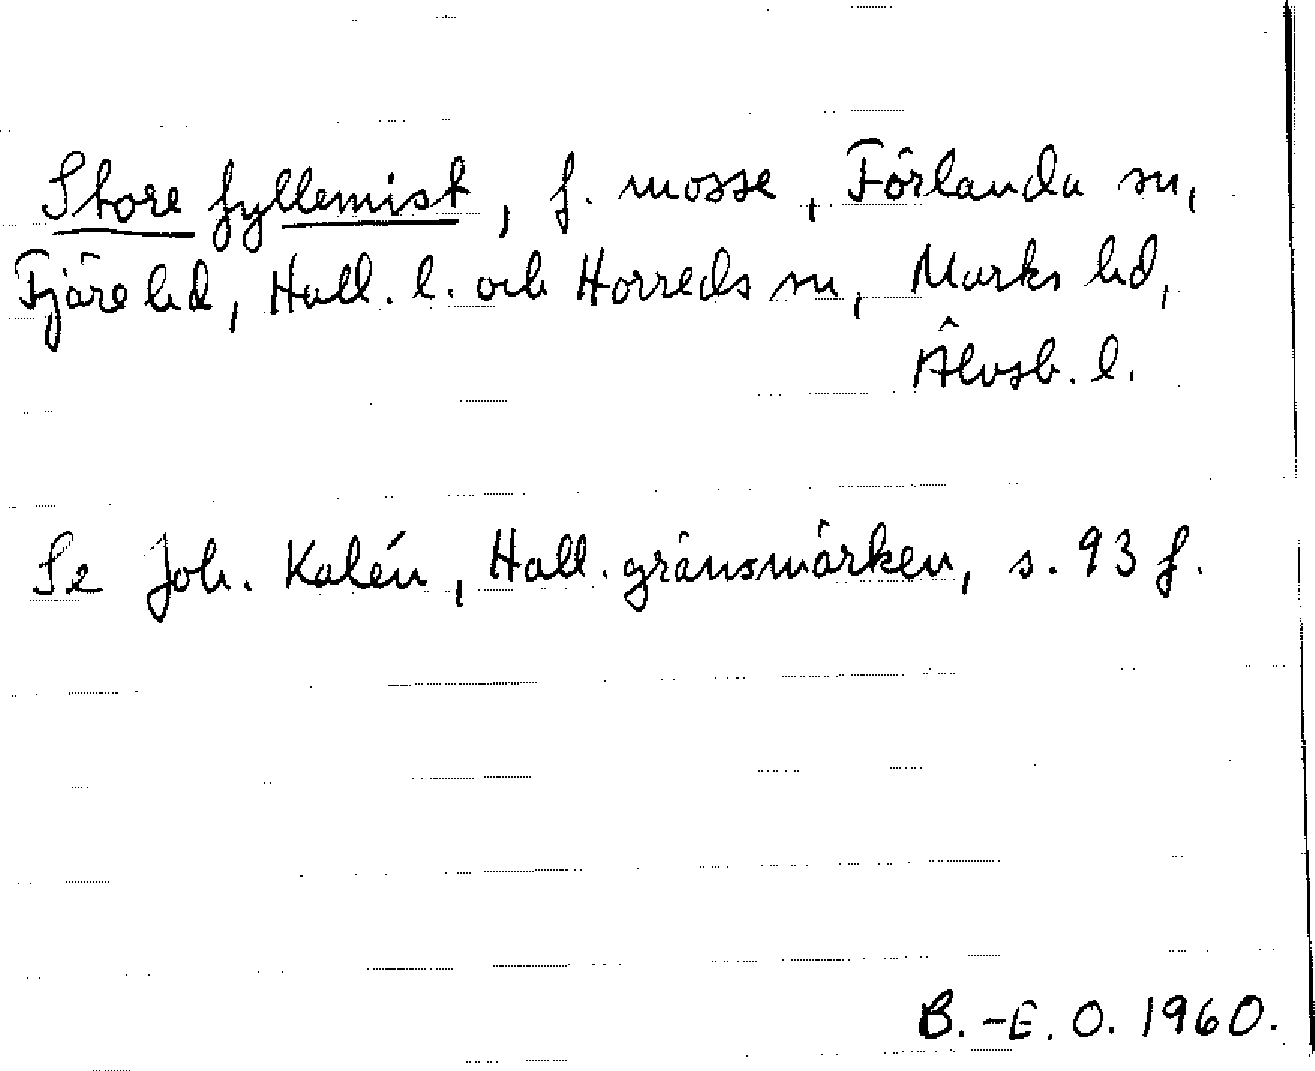 Store fyllemist, f. mosse, Förlanda sn,
Fjäre hd, Hall. l. och Horreds sn, Marks hd,
Älvsb. l.
Se Joh. Kalén, Hall. gränsmärken, s. 93 f.
B.-E. O. 1960.